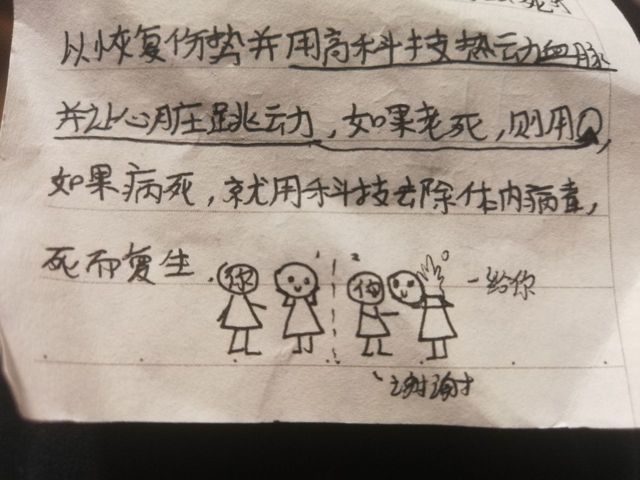 以恢复伤势并用高科技热动血脉
并让心脏跳动,如果老死,则用
如果病死,就用科技去除体内病毒,
死而复生.
你
1
2
你
一给你
谢谢